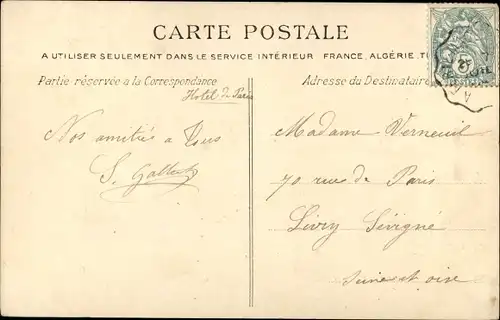 CARTE POSTALE
A UTILISER SEULEMENT DANS LE SERVICE INTÉRIEUR FRANCE, ALGÉRIE,
Partie réservée a la Correspondance
Adresse du Destinataire
Hotel de Paris
Nos amitiés a tous
Madame Verneuil
70 rue de Paris
Livry Sévigné
Seine et oise